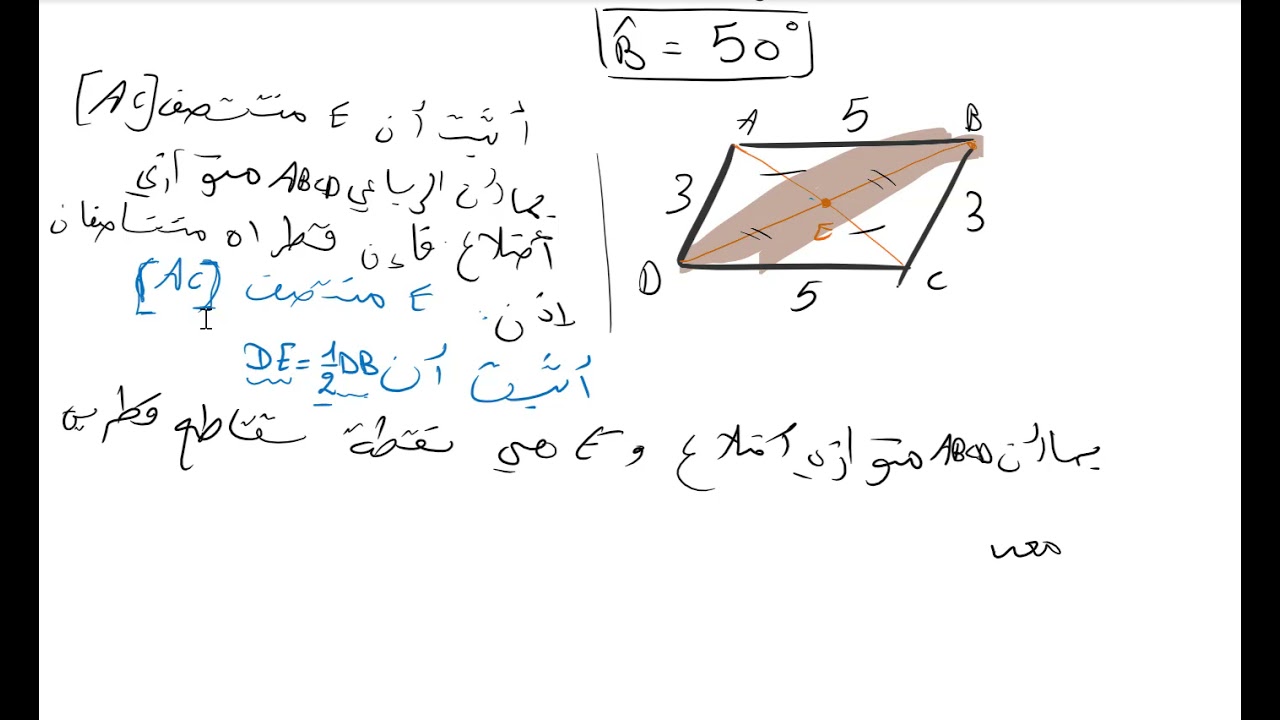 B̂ = 50°
أثبت أن E منتصف [AC]
بما أن الرباعي ABCD متوازي
أضلاع فإن قطراه متناصفان
إذن E منتصف [AC]
أثبت أن DE = 1/2 DB
بما أن ABCD متوازي أضلاع و E هي نقطة تقاطع قطريه
A 5 B
3
3
E
D 5 C